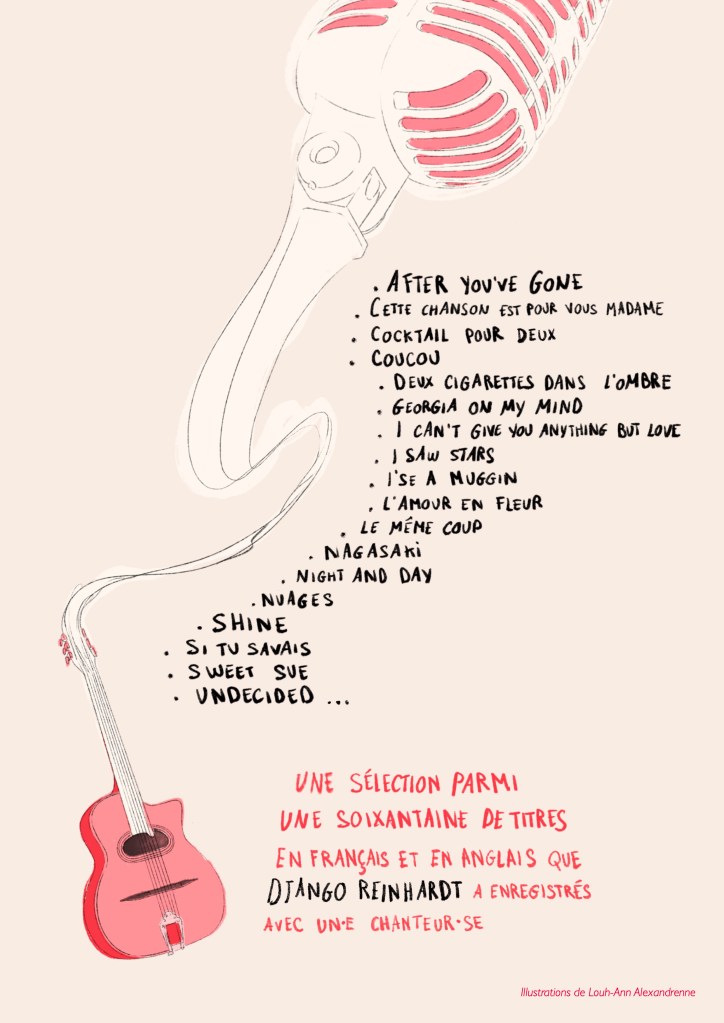 . AFTER YOU'VE GONE
. CETTE CHANSON EST POUR VOUS MADAME
. COCKTAIL POUR DEUX
. COUCOU
. DEUX CIGARETTES DANS L'OMBRE
. GEORGIA ON MY MIND
. I CAN'T GIVE YOU ANYTHING BUT LOVE
. I SAW STARS
. I'SE A MUGGIN
. L'AMOUR EN FLEUR
. LE MÉME COUP
. NAGASAKi
. NIGHT AND DAY
. NUAGES
. SHINE
. SI TU SAVAIS
. SWEET SUE
. UNDECIDED ...
UNE SÉLECTION PARMI
UNE SOIXANTAINE DE TITRES
EN FRANÇAIS ET EN ANGLAIS QUE
DJANGO REINHARDT A ENREGISTRÉS
AVEC UN•E CHANTEUR•SE
Illustrations de Louh-Ann Alexandrenne